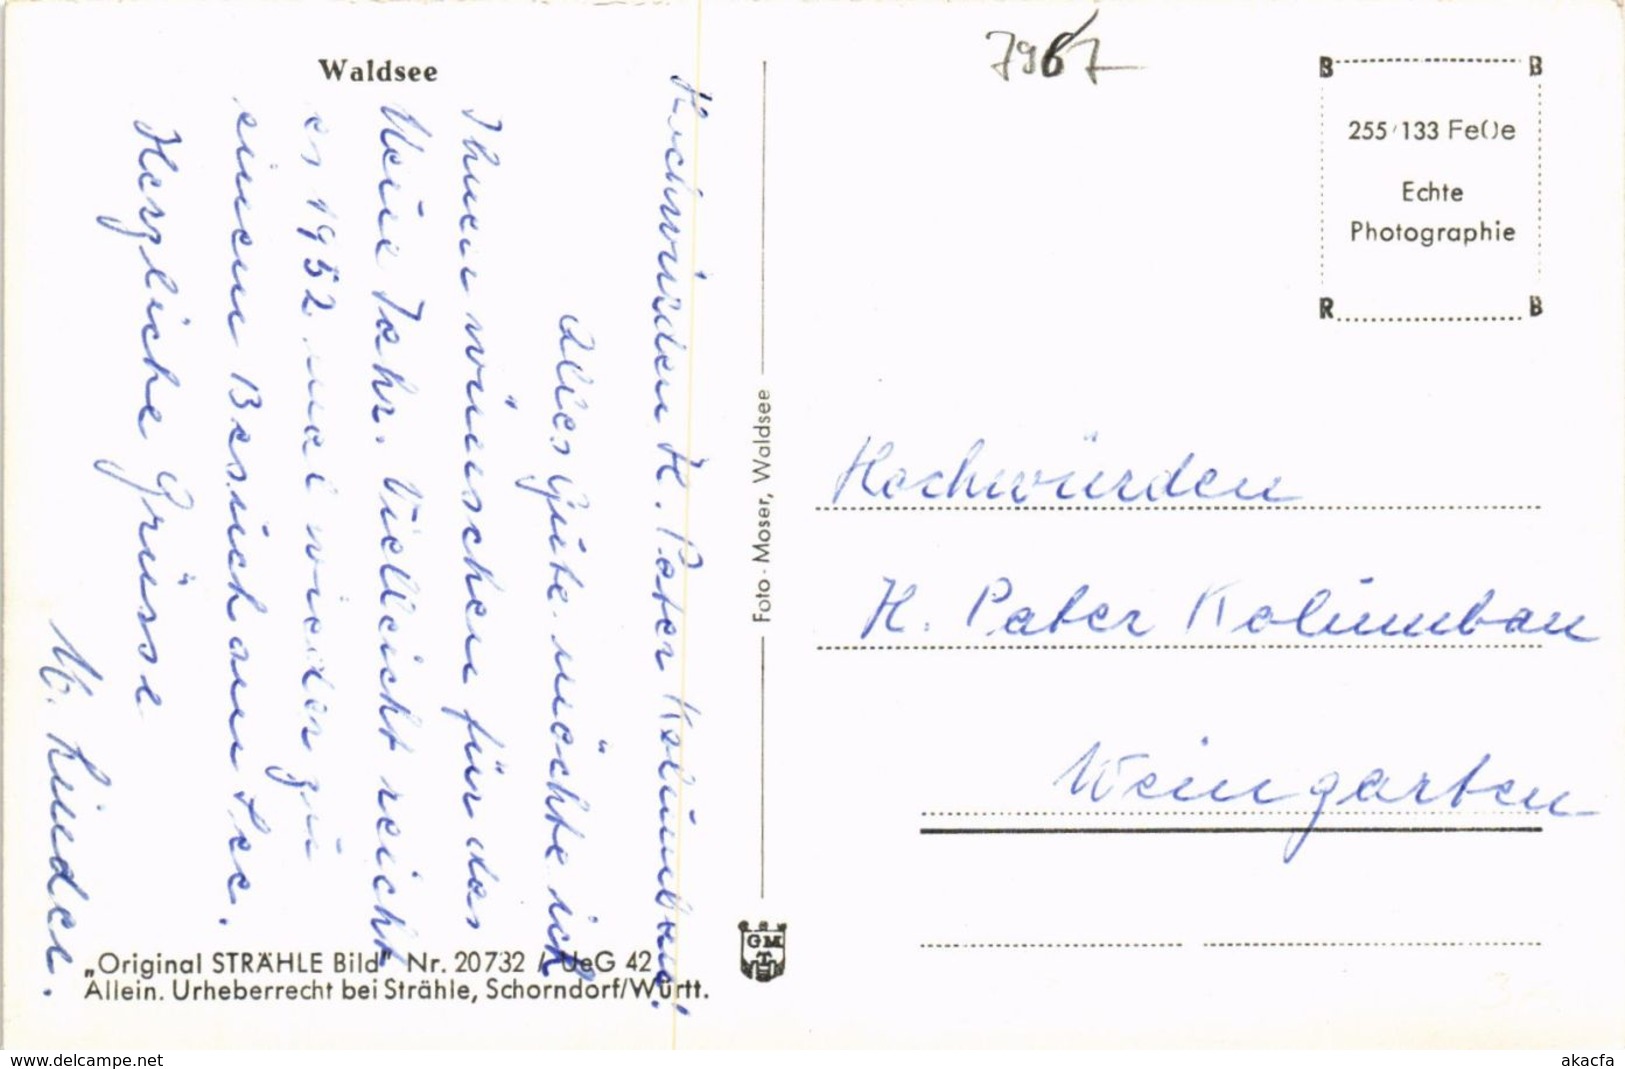 Waldsee
Hochwürden H. Pater Kolumban!
Alles Gute möchte ich
Ihnen wünschen für das
Neue Jahr. Vielleicht reicht
es 1952 mal wieder zu
einem Besuch am See.
Herzliche Grüsse
M. Linder.
„Original STRÄHLE Bild" Nr. 20732 / UeG 42
Allein. Urheberrecht bei Strähle, Schorndorf/Württ.
Foto-Moser, Waldsee
GM
T
7967
B B
255/133 Fe()e
Echte
Photographie
R B
Hochwürden
H. Pater Kolumban
Weingarten
www.delcampe.net
akacfa